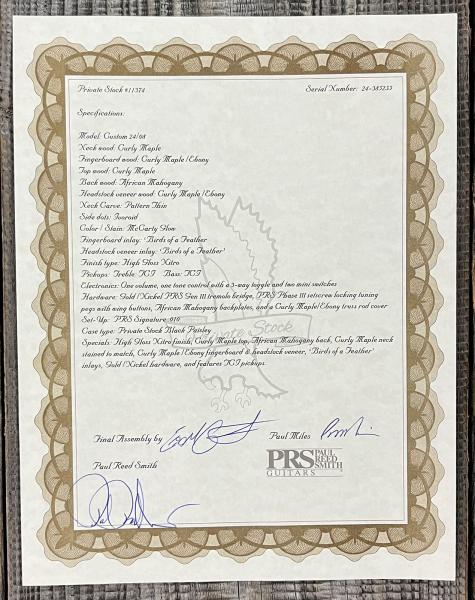 Private Stock #11374 Serial Number: 24-383233
Specifications:
Model: Custom 24/08
Neck wood: Curly Maple
Fingerboard wood: Curly Maple/Ebony
Top wood: Curly Maple
Back wood: African Mahogany
Headstock veneer wood: Curly Maple/Ebony
Neck Carve: Pattern Thin
Side dots: Ivoroid
Color / Stain: McCarty Glow
Fingerboard inlay: 'Birds of a Feather'
Headstock veneer inlay: 'Birds of a Feather'
Finish type: High Gloss Nitro
Pickups: Treble: TCI Bass: TCI
Electronics: One volume, one tone control with a 3-way toggle and two mini switches
Hardware: Gold/Nickel PRS Gen III tremolo bridge, PRS Phase III setscrew locking tuning
pegs with wing buttons, African Mahogany backplates, and a Curly Maple/Ebony truss rod cover
Set-Up: PRS Signature .010
Case type: Private Stock Black Paisley
Private Stock
Specials: High Gloss Nitro finish, Curly Maple top, African Mahogany back, Curly Maple neck
stained to match, Curly Maple/Ebony fingerboard & headstock veneer, 'Birds of a Feather'
inlays, Gold/Nickel hardware, and features TCI pickups.
Final Assembly by Paul Miles
Paul Reed Smith
PRS PAUL
REED
SMITH
GUITARS